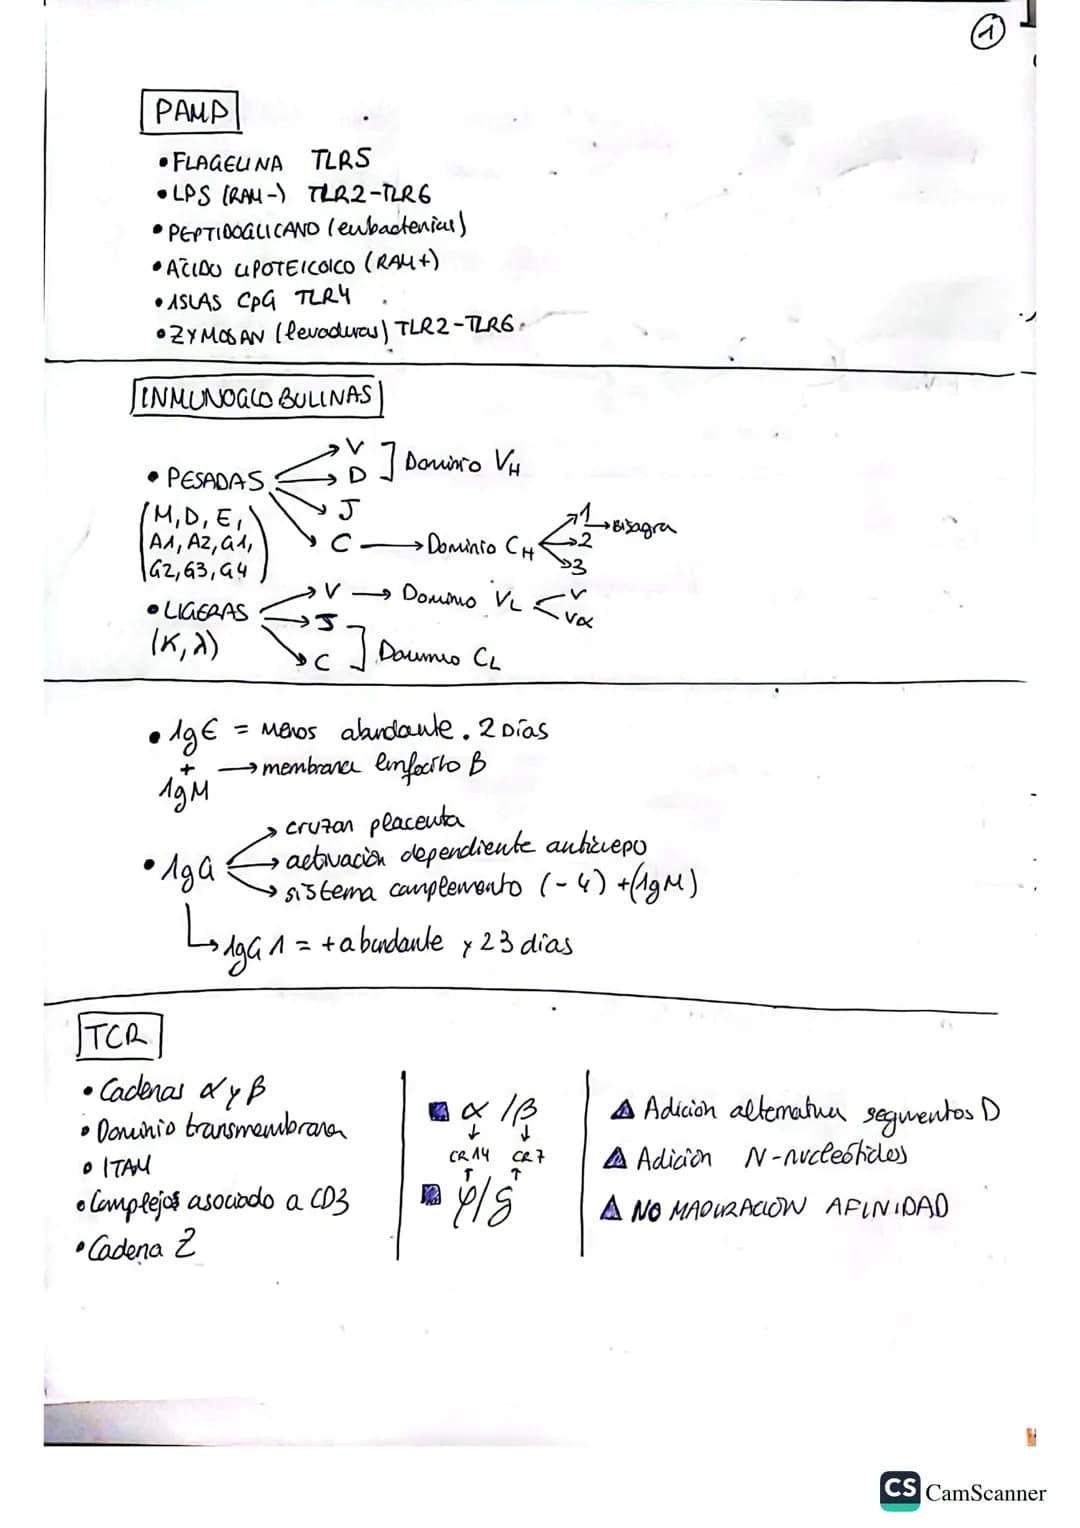 1
PAMP
• FLAGELINA TLR5
• LPS (RAM-) TLR2-TLR6
• PEPTIDOGLICANO (eubacterias)
• ÁCIDO LIPOTEICOICO (RAM+)
• ISLAS CpG TLR4
• ZYMOSAN (levaduras) TLR2-TLR6
INMUNOGLOBULINAS
• PESADAS → V → D ] Dominio VH
→ J
(M, D, E, A1, A2, G1, G2, G3, G4)
→ C → Dominio CH → 1 → Bisagra
→ 2
→ 3
• LIGERAS → V → Dominio VL < V
Vα
(K, λ) → J
→ C ] Dominio CL
• IgE = Menos abundante. 2 Días
+ → membrana linfocito B
IgM
• IgG → cruzan placenta
→ activación dependiente anticuerpo
→ sistema complemento (-4) + (IgM)
↳ IgG 1 = + abundante y 23 días
TCR
• Cadenas α y β
• Dominio transmembrana
• ITAM
• Complejos asociado a CD3
• Cadena Z
α / β
↓ ↓
CR14 CR7
↑ ↑
φ/δ
Adición alternativa segmentos D
Adición N-nucleótidos
NO MADURACION AFINIDAD
CS CamScanner